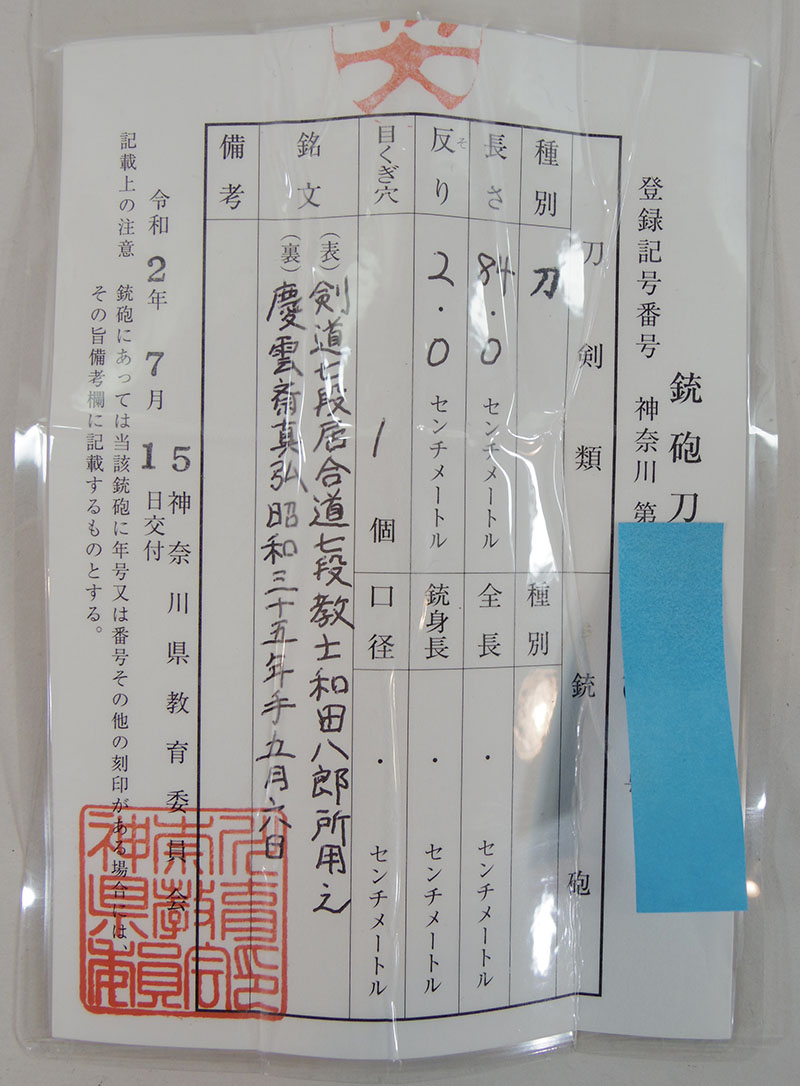 銃砲刀
登録記号番号 神奈川 第
刀剣類
銃砲
種別 刀
種別
長さ 84.0 センチメートル
全長 ・ センチメートル
反り 2.0 センチメートル
そ
銃身長 ・ センチメートル
目くぎ穴 1 個
口径 ・ センチメートル
銘文
(表) 剣道七段居合道七段教士和田八郎所用之
(裏) 慶雲斎真弘昭和三十五年手五月六日
備考
令和2年7月15日交付
神奈川県教育委員会
記載上の注意 銃砲にあっては当該銃砲に年号又は番号その他の刻印がある場合には、
その旨備考欄に記載するものとする。